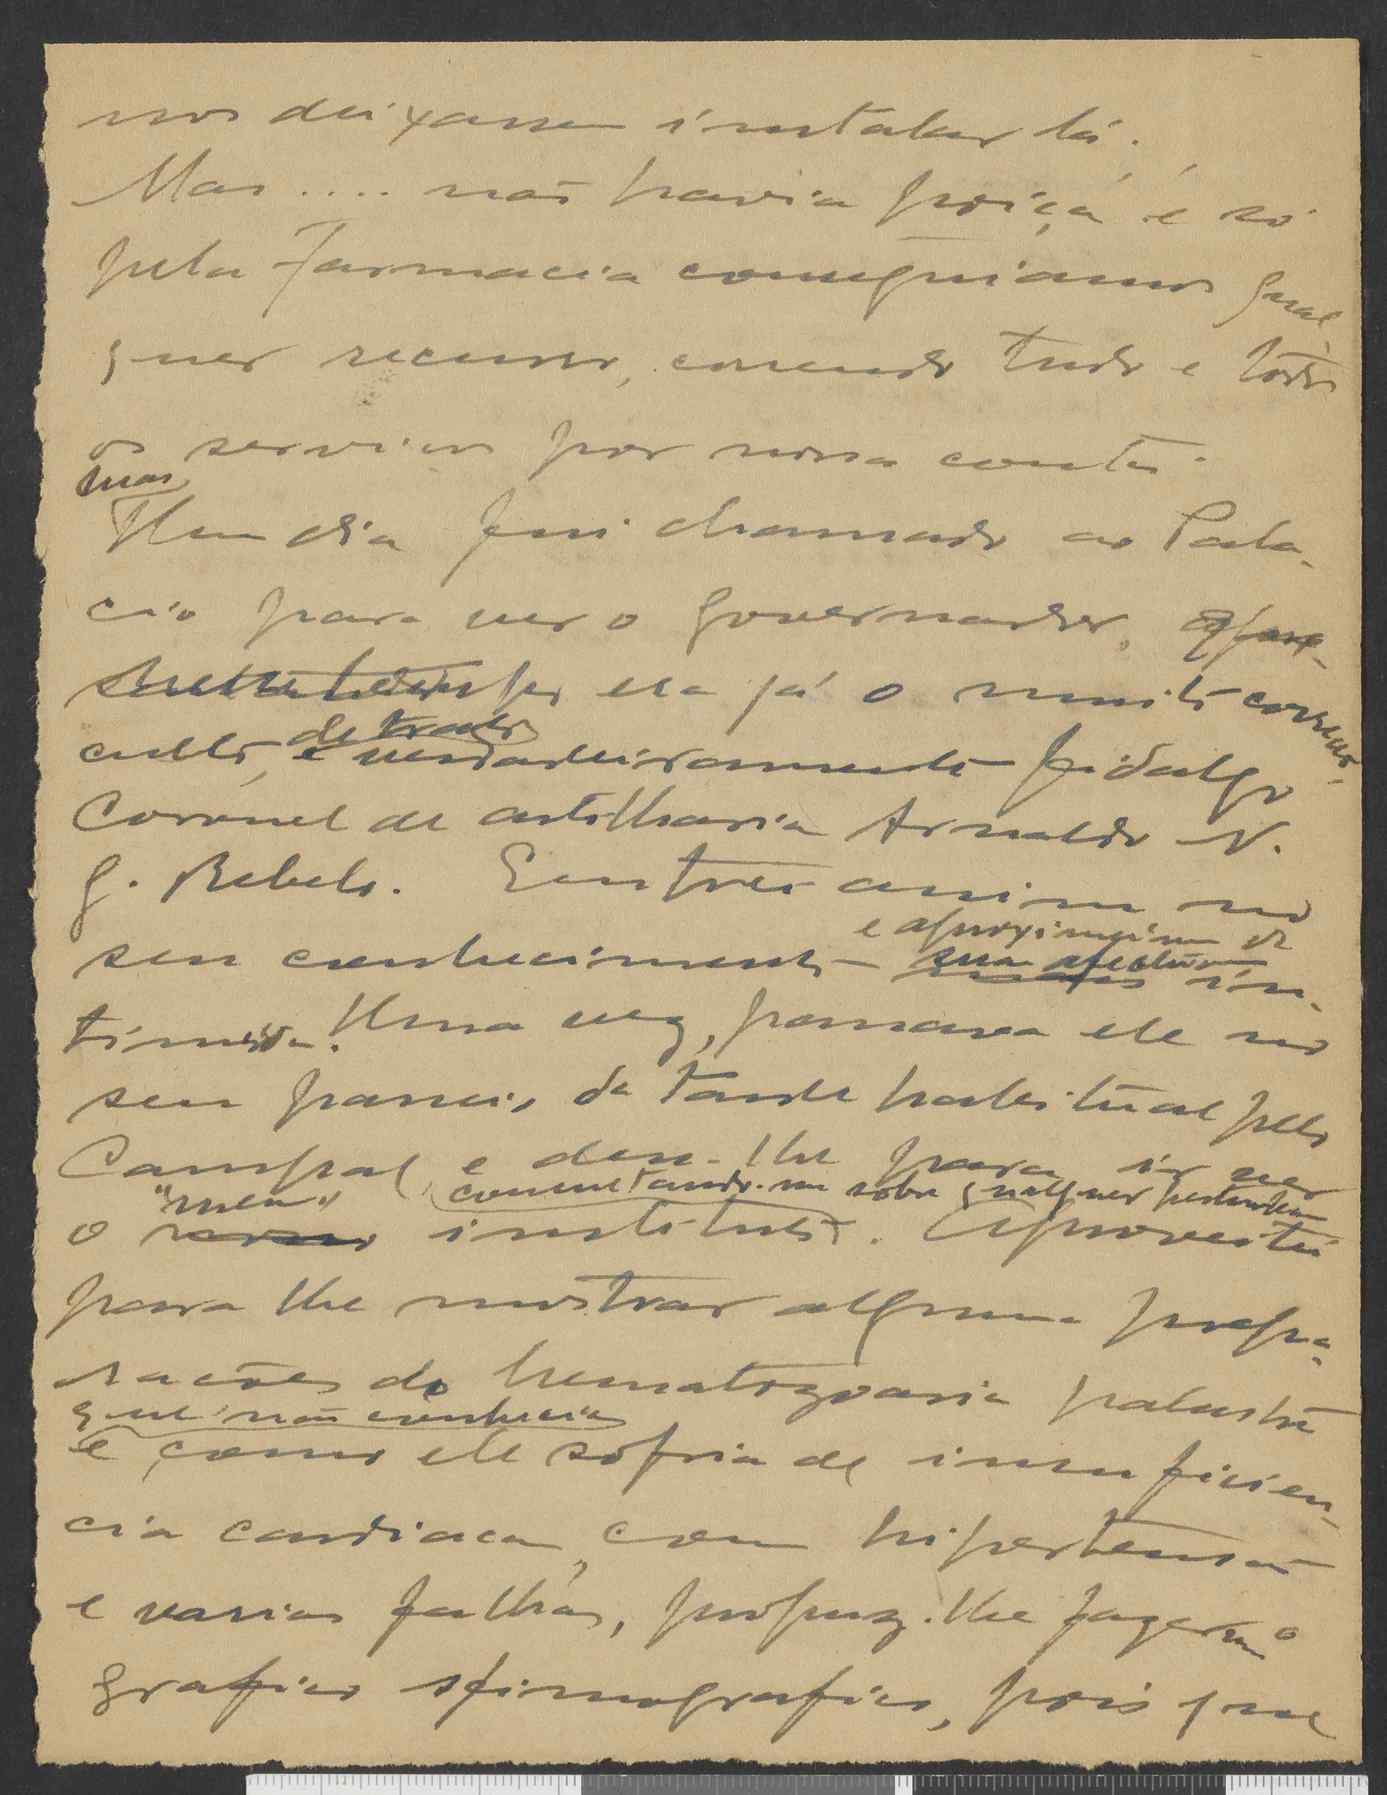 nos deixassem instalar lá.
Mas .... não havia fôrça e só
pela Farmacia conseguiamos qual
quer recurso, correndo tudo e todos
os serviços por nossa conta.
mas
Um dia fui chamado ao Pala-
cio para ver o governador,
era já o muito correcto,
culto, de trato
e verdadeiramente fidalgo
Coronel de artilharia Arnaldo N.
G. Rebelo. Entrei assim no
e aproximei-me da
seu conhecimento sua
in-
timidade. Uma vez, passava ele no
seu passeio da tarde habitual pelo
Campal e deu-lhe para ir ver
"meu" consultando-me sobre qualquer
o instituto. Aproveitei
para lhe mostrar algumas prepa-
rações do hematozoario palustre
que não conhecia
e como ele sofria de insuficien-
cia cardiaca, com hipertensão
e varias falhas, propuz-lhe fazer um
grafico sfimografico, pois que